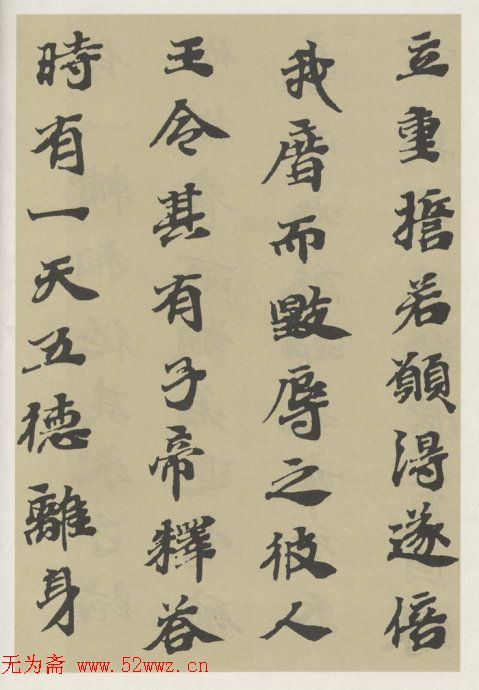 立重擔若願得遂倍
我而毀辱之彼人
王令其有子帝釋答
時有一天五德離身
无为斋 www.52wwz.cn